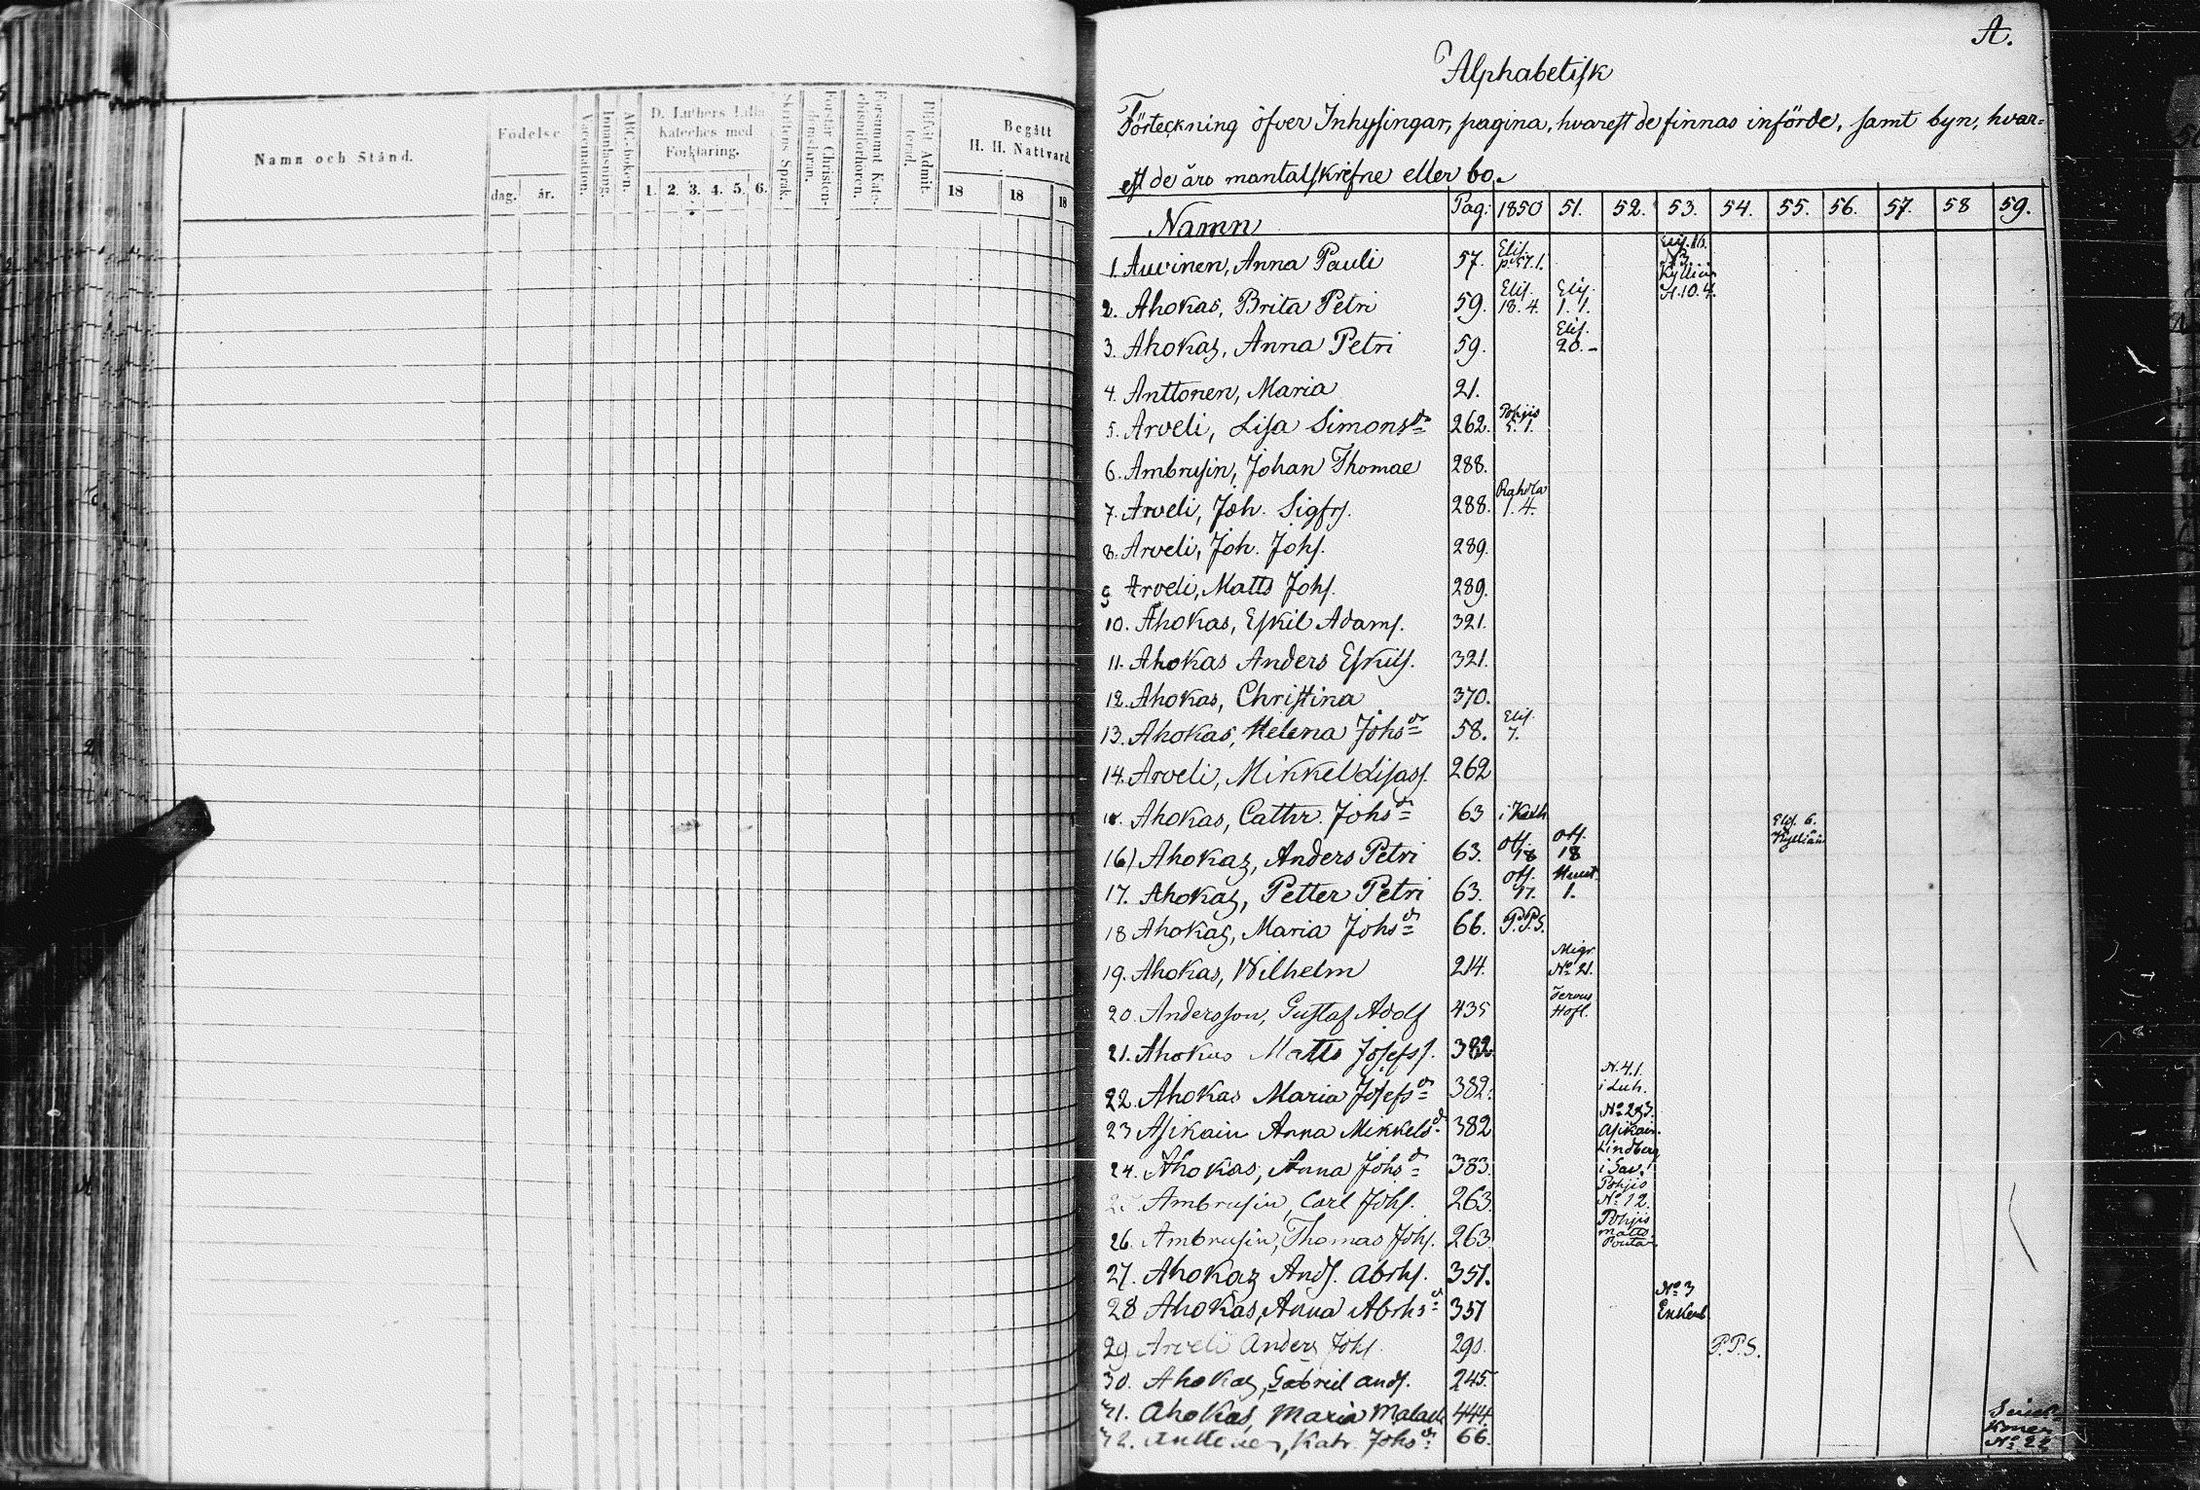 Namn och Stånd.
Födelse
dag. år.
Vaccination.
Innanläsning.
ABC-boken.
D. Luthers Lilla
Kateches med
Förklaring.
1. 2. 3. 4. 5. 6.
Skriftens Språk.
Begått
H. H. Nattvard.
18 18 18
A.
Alphabetisk
Förteckning öfver Inhysingar, pagina, hvarest de finnas införde, samt byn, hvar=
est de äro mantalskrefne eller bo.
Namn Pag: 1850 51. 52. 53. 54. 55. 56. 57. 58 59.
1. Auvinen, Anna Pauli 57. Elis. p. 57. 1. N 3. A. 10. 4.
2. Ahokas, Brita Petri 59. Elis. 18. 4. Elis. 1. 1.
3. Ahokas, Anna Petri 59. Elis. 20. -
4. Anttonen, Maria 21.
5. Arveli, Lisa Simonsdr 262. Pohjis 5. 1.
6. Ambrusin, Johan Thomae 288.
7. Arveli, Joh. Sigfrs. 288. Rahola 1. 4.
8. Arveli, Joh. Johs. 289.
9 Arveli, Matts Johs. 289.
10. Ahokas, Eskil Adams. 321.
11. Ahokas Anders Eskils. 321.
12. Ahokas, Christina 370.
13. Ahokas, Helena Johsdr 58. Elis. 7.
14. Arveli, Mikkel Lisass. 262
Ahokas, Cathr. Johsdr 63 i Kath Elis. 6.
16) Ahokas, Anders Petri 63. Ots. 18 Ots. 18
17. Ahokas, Petter Petri 63. Ots. 17. 1.
18 Ahokas, Maria Johsdr 66. P.P.S.
19. Ahokas, Wilhelm 214. Migr. No 21.
20. Andersson, Gustaf Adolf 435 Jervis Hofl.
21. Ahokas Matts Josefss. 382
22. Ahokas Maria Josefsdr 382. N. 4. 1. i Luh.
23 Asikain Anna Mikkelsd. 382 Asikain
24. Ahokas, Anna Johsdr 383. Lindberg i Sav.
Ambrusin, Carl Johs. 263. Pohjis No 12.
26. Ambrusin, Thomas Johs. 263 Pohjis Matts Pouta
27. Ahokas Ands. Abrhs. 351.
28 Ahokas, Anna Abrhsdr 351 No 3
29 Arveli Anders Johs. 290. P.P.S.
30. Ahokas, Gabriel Ands. 245.
31. Ahokas, Maria Malach 444.
Anttonen, Katr. Johsdr 66. No 22